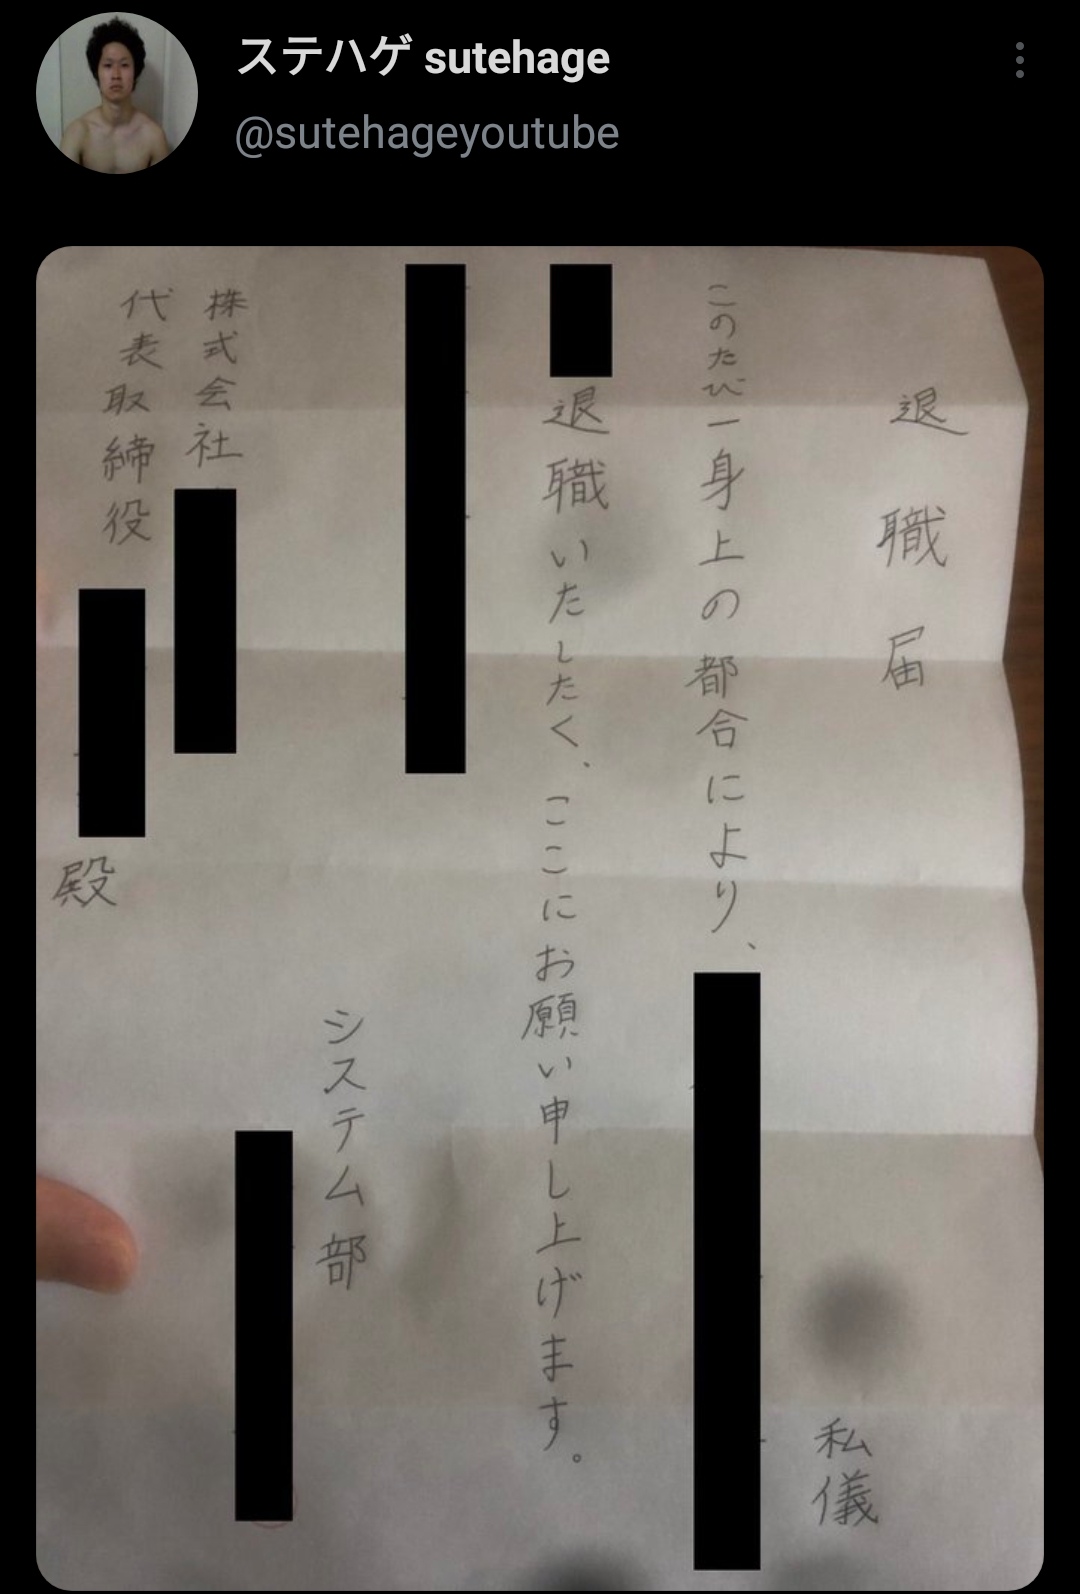 ステハゲ sutehage
@sutehageyoutube
退職届
私儀
このたび一身上の都合により、
退職いたしたく、ここにお願い申し上げます。
システム部
株式会社
代表取締役
殿